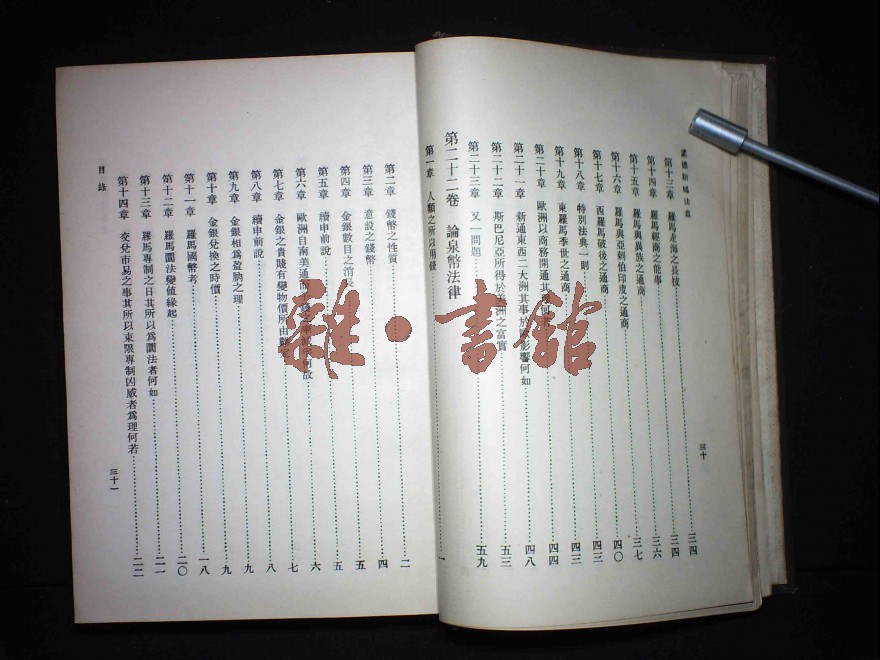 孟德斯鳩法意
第十三章 羅馬於海之長技……三四
第十四章 羅馬經商之能事……三四
第十五章 羅馬與異族之通商……三六
第十六章 羅馬與亞剌伯印度之通商……三七
第十七章 西羅馬破後之通商……四〇
第十八章 特別法典一則……四三
第十九章 東羅馬季世之通商……四三
第二十章 歐洲以商務開通其
何……四四
第二十一章 新通東西二大洲其事於
影響何如……四八
第二十二章 斯巴尼亞所得於美洲之富實……五三
第二十三章 又一問題……五九
第二十二卷 論泉幣法律
第一章 人類之所以用錢……一
三十
第二章 錢幣之性質……二
第三章 意設之錢幣……四
第四章 金銀數目之消長……五
第五章 續申前說……五
第六章 歐洲自南美通而
故……六
第七章 金銀之貴賤有變物價所由
定……七
第八章 續申前說……八
第九章 金銀相為盈朒之理……九
第十章 金銀兌換之時價……九
第十一章 羅馬國幣考……一八
第十二章 羅馬圜法變值緣起……二〇
第十三章 羅馬專制之日其所以為圜法者何如……二一
第十四章 交兌市易之事其所以束限專制凶威者為理何若……二二
目錄
三十一
雜·書館